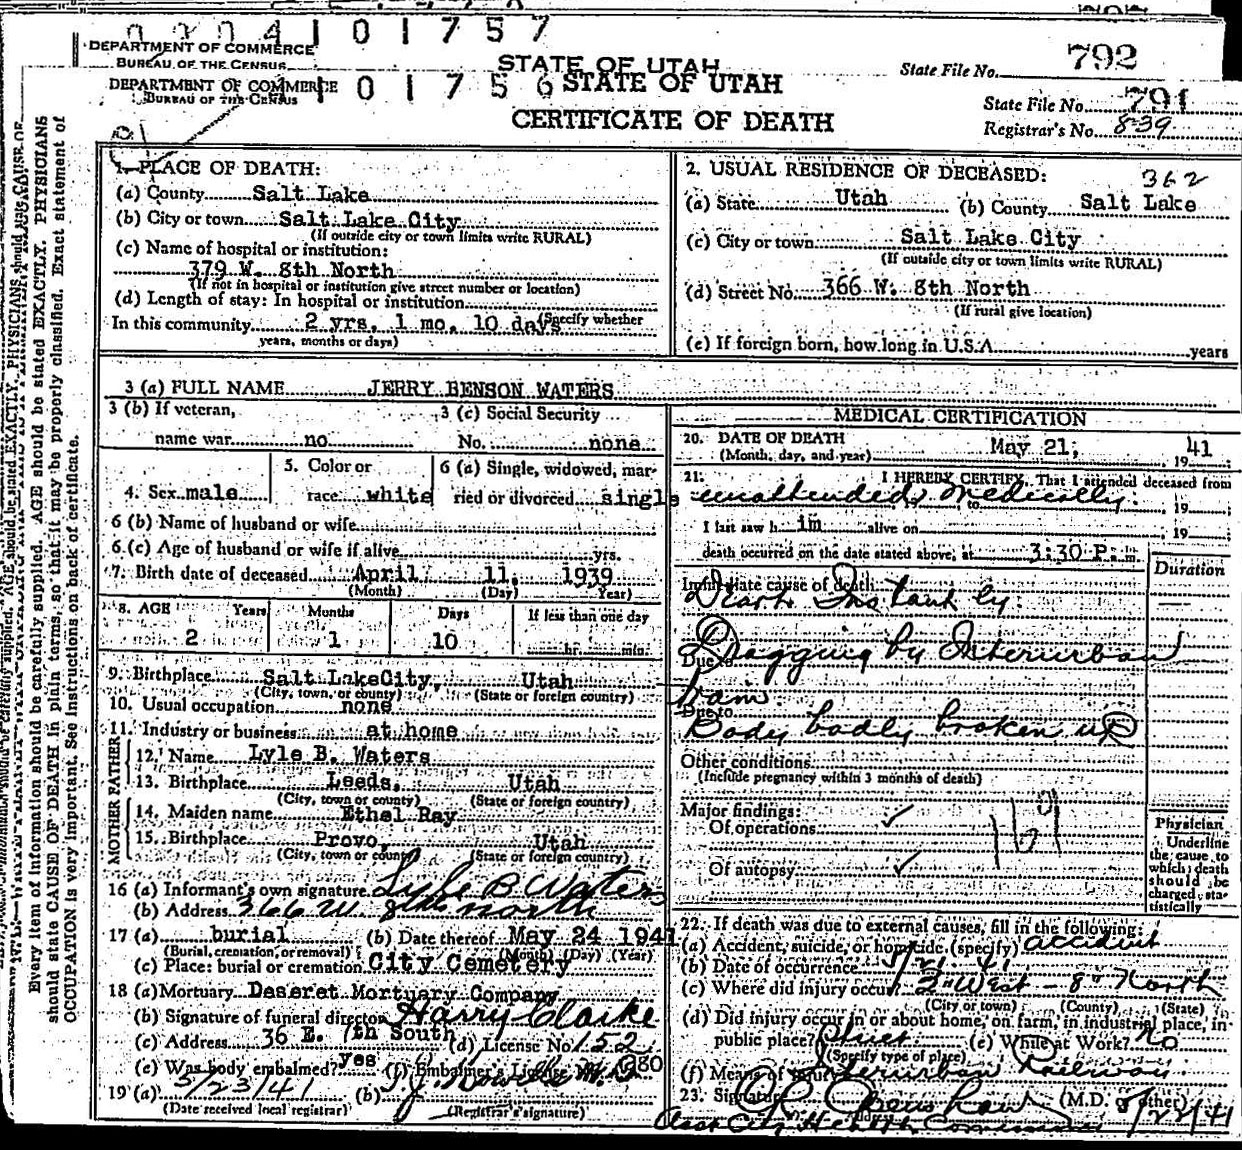 0204101757
DEPARTMENT OF COMMERCE
BUREAU OF THE CENSUS
STATE OF UTAH
State File No. 792
DEPARTMENT OF COMMERCE
BUREAU OF THE CENSUS
101756
STATE OF UTAH
State File No. 791
CERTIFICATE OF DEATH
Registrar's No. 839
Every item of information should be carefully supplied. AGE should be stated EXACTLY. PHYSICIANS
should state CAUSE OF DEATH in plain terms, so that it may be properly classified. Exact statement of
OCCUPATION is very important. See instructions on back of certificate.
1. PLACE OF DEATH:
(a) County Salt Lake
(b) City or town Salt Lake City
(If outside city or town limits write RURAL)
(c) Name of hospital or institution:
379 W. 8th North
(If not in hospital or institution give street number or location)
(d) Length of stay: In hospital or institution
(Specify whether
In this community 2 yrs. 1 mo. 10 days
years, months or days)
2. USUAL RESIDENCE OF DECEASED:
362
(a) State Utah (b) County Salt Lake
(c) City or town Salt Lake City
(If outside city or town limits write RURAL)
(d) Street No. 366 W. 8th North
(If rural give location)
(e) If foreign born, how long in U.S.A. years
3 (a) FULL NAME JERRY BENSON WATERS
3 (b) If veteran, 3 (c) Social Security
name war no No. none
4. Sex male
5. Color or
race white
6 (a) Single, widowed, mar-
ried or divorced single
6 (b) Name of husband or wife
6 (c) Age of husband or wife if alive yrs.
7. Birth date of deceased April 11, 1939
(Month) (Day) Year)
8. AGE Years Months Days If less than one day
2 1 10 hr. min.
9. Birthplace Salt LakeCity, Utah
(City, town, or county) (State or foreign country)
10. Usual occupation none
11. Industry or business at home
FATHER
12. Name Lyle B. Waters
13. Birthplace Leeds, Utah
(City, town or county) (State or foreign country)
MOTHER
14. Maiden name Ethel Ray
15. Birthplace Provo, Utah
(City, town or county) (State or foreign country)
16 (a) Informant's own signature Lyle B Waters
(b) Address 366 W. 8th North
17 (a) burial (b) Date thereof May 24 1941
(Burial, cremation, or removal) (Month) (Day) (Year)
(c) Place: burial or cremation City Cemetery
18 (a) Mortuary Deseret Mortuary Company
(b) Signature of funeral director Harry Clarke
(c) Address 36 E. 7th South (d) License No. 152
(e) Was body embalmed? yes (f) Embalmer's License No. 380
19 (a) 5/23/41 (b)
(Date received local registrar) (Registrar's signature)
MEDICAL CERTIFICATION
20. DATE OF DEATH May 21, 1941
(Month, day, and year)
21. I HEREBY CERTIFY, That I attended deceased from
unattended medically. to 19
I last saw him alive on 19
death occurred on the date stated above, at 3:30 P. m
Duration
Immediate cause of death
Death Instantly.
Due to Dragging by Interurban
train.
Due to
Body badly broken up
Other conditions
(Include pregnancy within 3 months of death)
Major findings:
Of operations ✓
Of autopsy ✓
Physician
Underline
the cause to
which death
should be
charged sta-
tistically
22. If death was due to external causes, fill in the following:
(a) Accident, suicide, or homicide (specify) accident
(b) Date of occurrence 5/21/41
(c) Where did injury occur? 3rd West - 8th North
(City or town) (County) (State)
(d) Did injury occur in or about home, on farm, in industrial place, in
public place? Street (e) While at Work? No
(Specify type of place)
(f) Means of injury Interurban Railway.
23. Signature (M.D. or other) 5/22/41
Asst City Health Commissioner